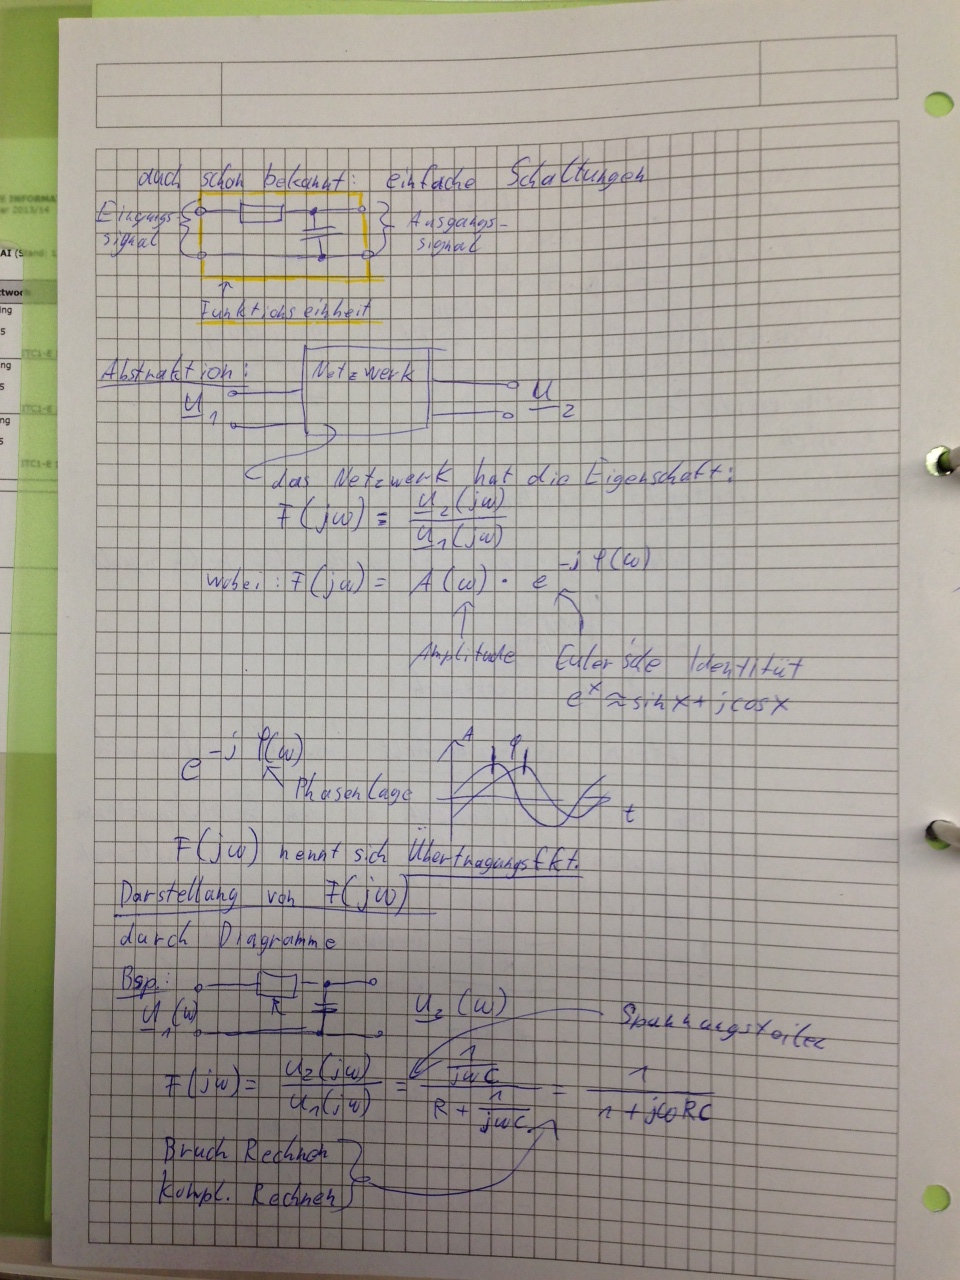 auch schon bekannt: einfache Schaltungen
Eingangs-
signal
Ausgangs-
signal
Funktionseinheit
Abstraktion:
Netzwerk
U1
U2
das Netzwerk hat die Eigenschaft:
F(jω) = U2(jω) / U1(jω)
wobei: F(jω) = A(ω) · e^-jφ(ω)
Amplitude
Euler'sche Identität
e^x ≈ sinx + jcosx
e^-jφ(ω)
Phasenlage
A
φ
t
F(jω) nennt sich Übertragungsfkt.
Darstellung von F(jω)
durch Diagramme
Bsp.:
R
U1(ω)
U2(ω)
Spannungsteiler
F(jω) = U2(jω) / U1(jω) = (1/jωC) / (R + 1/jωC) = 1 / (1 + jωRC)
Bruch Rechnen
Kompl. Rechnen
E INFORMA
2013/14
AI (S
ITC1-E
ing
s
ITC1-E
ng
s
ITC1-E
ng
s
ITC1-E